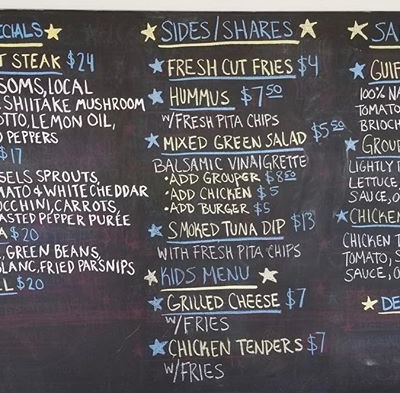 ECIALS
T STEAK $24
SOMS, LOCAL
, SHIITAKE MUSHROOM
OTTO, LEMON OIL,
D PEPPERS
$17
SELS SPROUTS,
MATO & WHITE CHEDDAR
OCCHINI, CARROTS,
ASTED PEPPER PURÉE
A $20
, GREEN BEANS,
BLANC, FRIED PARSNIPS
LL $20
SIDES/SHARES
FRESH CUT FRIES $4
HUMMUS $7.50
W/FRESH PITA CHIPS
MIXED GREEN SALAD $5.50
BALSAMIC VINAIGRETTE
• ADD GROUPER $8.50
• ADD CHICKEN $5
• ADD BURGER $5
SMOKED TUNA DIP $13
WITH FRESH PITA CHIPS
KIDS MENU
GRILLED CHEESE $7
W/FRIES
CHICKEN TENDERS $7
W/FRIES
SA
GUIF
100% NA
TOMATO
BRIOCH
GROU
LIGHTLY
LETTUCE,
SAUCE, O
CHICKEN
CHICKEN T
TOMATO, S
SAUCE, O
DE